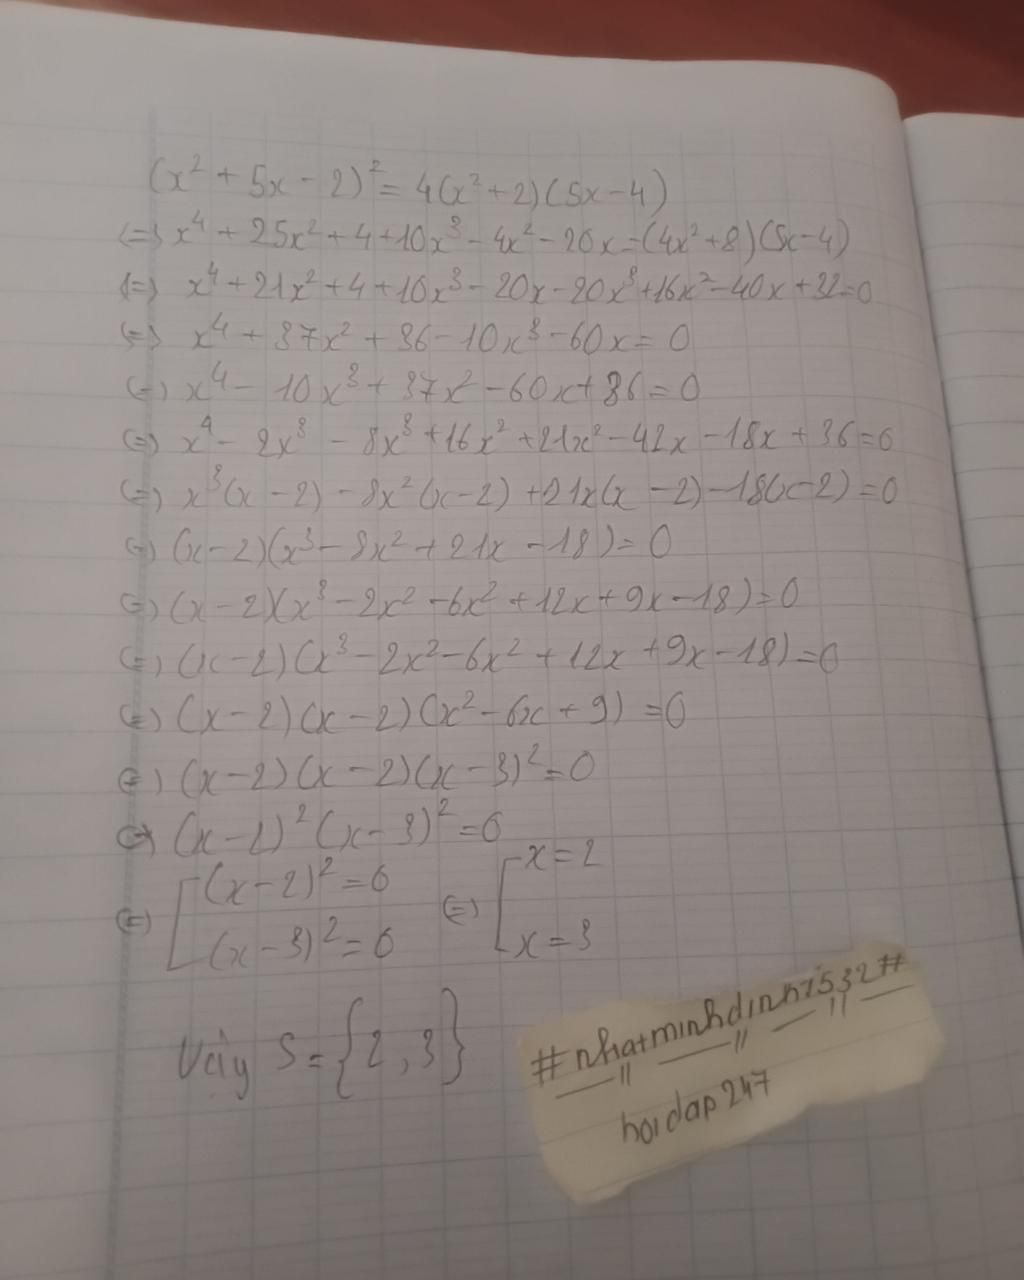 (x² + 5x - 2)² = 4(x² + 2)(5x - 4)
<=> x⁴ + 25x² + 4 + 10x³ - 4x² - 20x = (4x² + 8)(5x - 4)
<=> x⁴ + 21x² + 4 + 10x³ - 20x - 20x³ + 16x² - 40x + 32 = 0
<=> x⁴ + 37x² + 36 - 10x³ - 60x = 0
<=> x⁴ - 10x³ + 37x² - 60x + 36 = 0
<=> x⁴ - 2x³ - 8x³ + 16x² + 21x² - 42x - 18x + 36 = 0
<=> x³(x - 2) - 8x²(x - 2) + 21x(x - 2) - 18(x - 2) = 0
<=> (x - 2)(x³ - 8x² + 21x - 18) = 0
<=> (x - 2)(x³ - 2x² - 6x² + 12x + 9x - 18) = 0
<=> (x - 2)(x³ - 2x² - 6x² + 12x + 9x - 18) = 0
<=> (x - 2)(x - 2)(x² - 6x + 9) = 0
<=> (x - 2)(x - 2)(x - 3)² = 0
<=> (x - 2)²(x - 3)² = 0
<=> [ (x - 2)² = 0 <=> [ x = 2
(x - 3)² = 0 x = 3
Vậy S = {2, 3}
#nhatminhdinh7532#
hoidap247